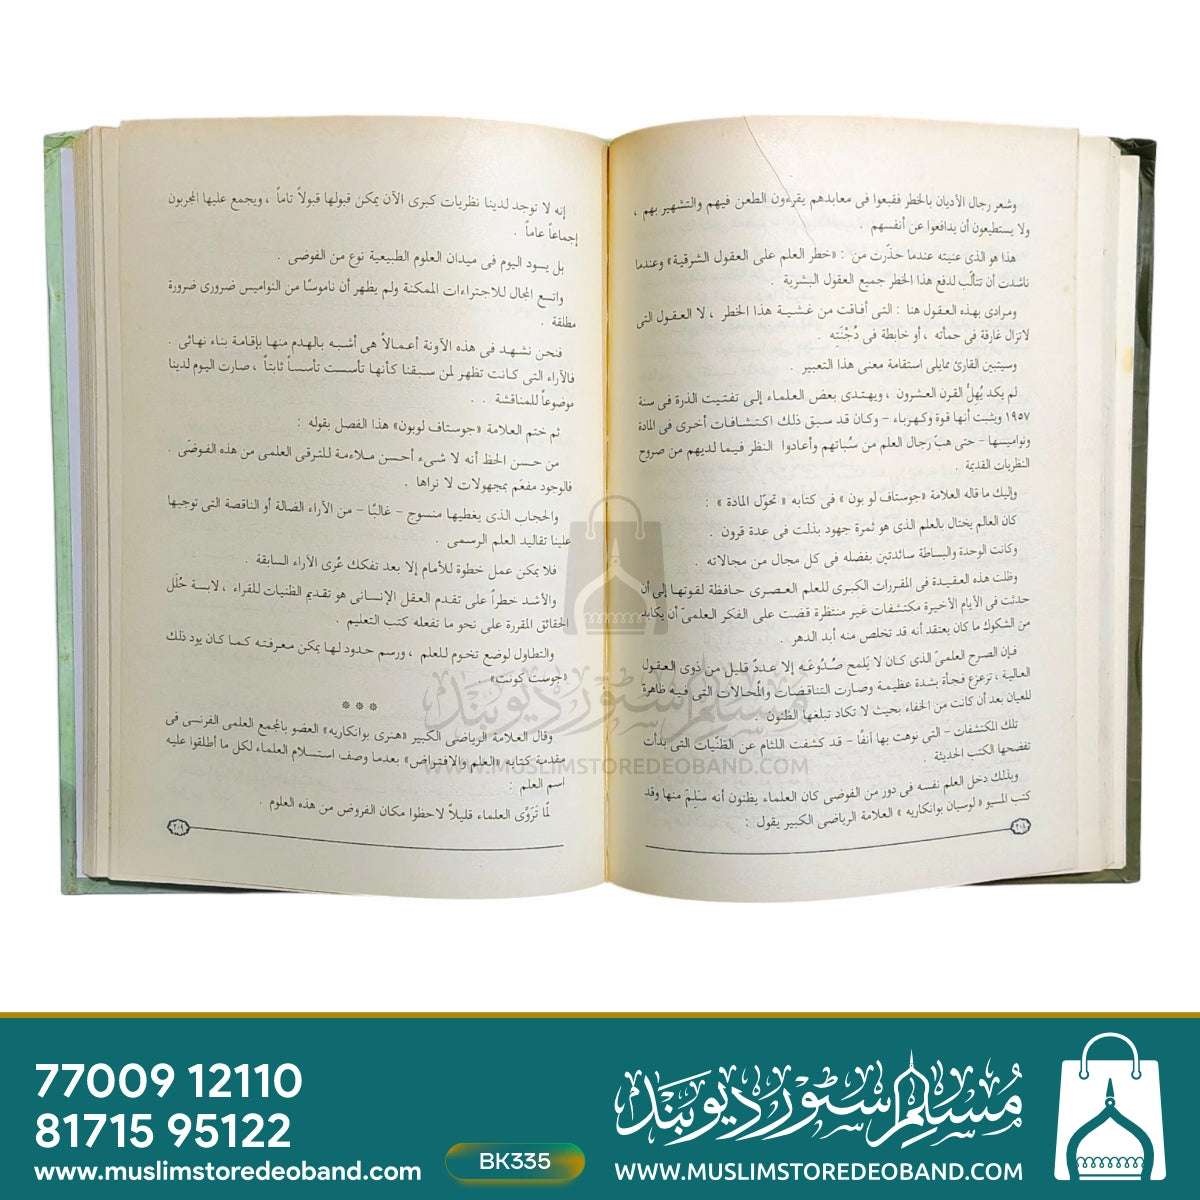 وشعر رجال الأديان بالخطر فقبعوا فى معابدهم يقرءون الطعن فيهم والتشهير بهم ،
ولا يستطيعون أن يدافعوا عن أنفسهم .
هذا هو الذى عنيته عندما حذّرت من : «خطر العلم على العقول الشرقية» وعندما
ناشدت أن تتألّب لدفع هذا الخطر جميع العقول البشرية .
ومرادى بهذه العقول هنا : التى أفاقت من غشية هذا الخطر ، لا العقول التى
لاتزال غارقة فى حمأته ، أو خابطة فى دُجْنَتِه .
وسيتبين القارئ ممايلى استقامة معنى هذا التعبير .
لم يكد يُهِلُّ القرن العشرون ، ويهتدى بعض العلماء إلى تفتيت الذرة فى سنة
١٩٥٧ ويثبت أنها قوة وكهرباء – وكان قد سبق ذلك اكتشافات أخرى فى المادة
ونواميسها – حتى هبّ رجال العلم من سُباتهم وأعادوا النظر فيما لديهم من صروح
النظريات القديمة .
وإليك ما قاله العلامة «جوستاف لو بون » فى كتابه « تحوّل المادة » :
كان العالم يختال بالعلم الذى هو ثمرة جهود بذلت فى عدة قرون .
وكانت الوحدة والبساطة سائدتين بفضله فى كل مجال من مجالاته .
وظلت هذه العقيدة فى المقررات الكبرى للعلم العصرى حافظة لقوتها إلى أن
حدثت فى الأيام الأخيرة مكتشفات غير منتظرة قضت على الفكر العلمىّ أن يكابد
من الشكوك ما كان يعتقد أنه قد تخلص منه أبد الدهر .
فإن الصرح العلمىّ الذى كان لا يَلمح صُدُوعَه إلا عددٌ قليل من ذوى العقول
العالية ، تزعزع فجأة بشدة عظيمة وصارت التناقضات والمُحالات التى فيه ظاهرة
للعيان بعد أن كانت من الخفاء بحيث لا تكاد تبلغها الظنون .
تلك المكتشفات – التى نوهت بها آنفا – قد كشفت اللثام عن الظنّيات التى بدأت
تفضحها الكتب الحديثة .
وبذلك دخل العلم نفسه فى دور من الفوضى كان العلماء يظنون أنه سَلِمَ منها وقد
كتب المسيو « لوسيان بوانكاريه » العلامة الرياضى الكبير يقول :
٢٠٨
إنه لا توجد لدينا نظريات كبرى الآن يمكن قبولها قبولاً تاماً ، ويجمع عليها المجربون
إجماعاً عاماً .
بل يسود اليوم فى ميدان العلوم الطبيعية نوع من الفوضى .
واتسع المجال للاجتراءات الممكنة ولم يظهر أن ناموسًا من النواميس ضرورى ضرورة
مطلقة .
فنحن نشهد فى هذه الآونة أعمالاً هى أشبه بالهدم منها بإقامة بناء نهائى .
فالآراء التى كانت تظهر لمن سبقنا كأنها تأسست تأسساً ثابتاً ، صارت اليوم لدينا
موضوعاً للمناقشة . .
ثم ختم العلامة «جوستاف لوبون» هذا الفصل بقوله :
من حسن الحظ أنه لا شىء أحسن ملاءمة للترقى العلمى من هذه الفوضَى .
فالوجود مفعَم بمجهولات لا نراها .
والحجاب الذى يغطيها منسوج – غالبًا – من الآراء الضالة أو الناقصة التى توجبها
علينا تقاليد العلم الرسمى .
فلا يمكن عمل خطوة للأمام إلا بعد تفكك عُرى الآراء السابقة .
والأشد خطراً على تقدم العقل الإنسانى هو تقديم الظنيات للقراء ، لابسة حُلَل
الحقائق المقررة على نحو ما تفعله كتب التعليم .
والتطاول لوضع تخوم للعلم ، ورسم حدود لها يمكن معرفته كما كان يود ذلك
«جوست كونت» .
***
وقال العلامة الرياضى الكبير «هنرى بوانكاريه» العضو بالمجمع العلمى الفرنسى فى
مقدمة كتابه «العلم والافتراض» بعدما وصف استسلام العلماء لكل ما أطلقوا عليه
اسم العلم :
لمّا تَرَوَّى العلماء قليلاً لاحظوا مكان الفروض من هذه العلوم .
٢٠٩
مسلم سٹور دیوبند
WWW.MUSLIMSTOREDEOBAND.COM
77009 12110
81715 95122
www.muslimstoredeoband.com
BK335
مسلم سٹور دیوبند
WWW.MUSLIMSTOREDEOBAND.COM